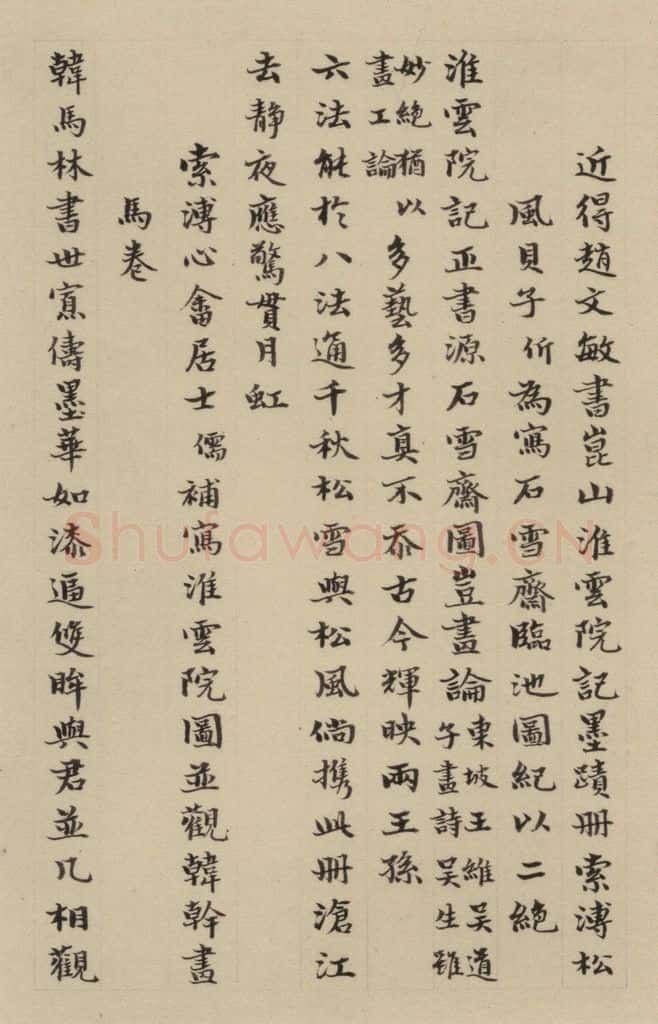 近得趙文敏書崑山淮雲院記墨蹟冊索溥松
風貝子所為寫石雪齋臨池圖紀以二絕
淮雲院記正書源石雪齋圖豈畫論東坡王維吳道
子畫詩吳生雖
妙絕猶以
畫工論
多藝多才真不忝古今輝映兩王孫
六法能於八法通千秋松雪與松風倘攜此冊滄江
去靜夜應驚貫月虹
索溥心畬居士儒補寫淮雲院圖並觀韓幹畫
馬卷
韓馬林書世寡儔墨華如漆逼雙眸與君並几相觀
Shufawang.CN